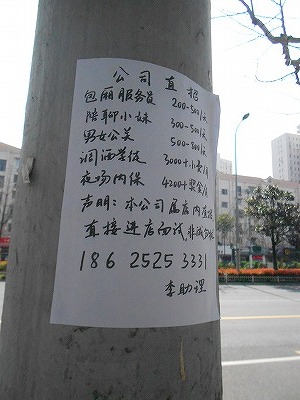 公司直招
包厢服务员 200-500/天
陪聊小妹 300-500/天
男女公关 500-800/天
调酒学徒 3000+小费/月
夜场内保 4200+奖金/月
声明：本公司属店内直招
直接进店面试,非诚勿扰
186 2525 3331
李助理